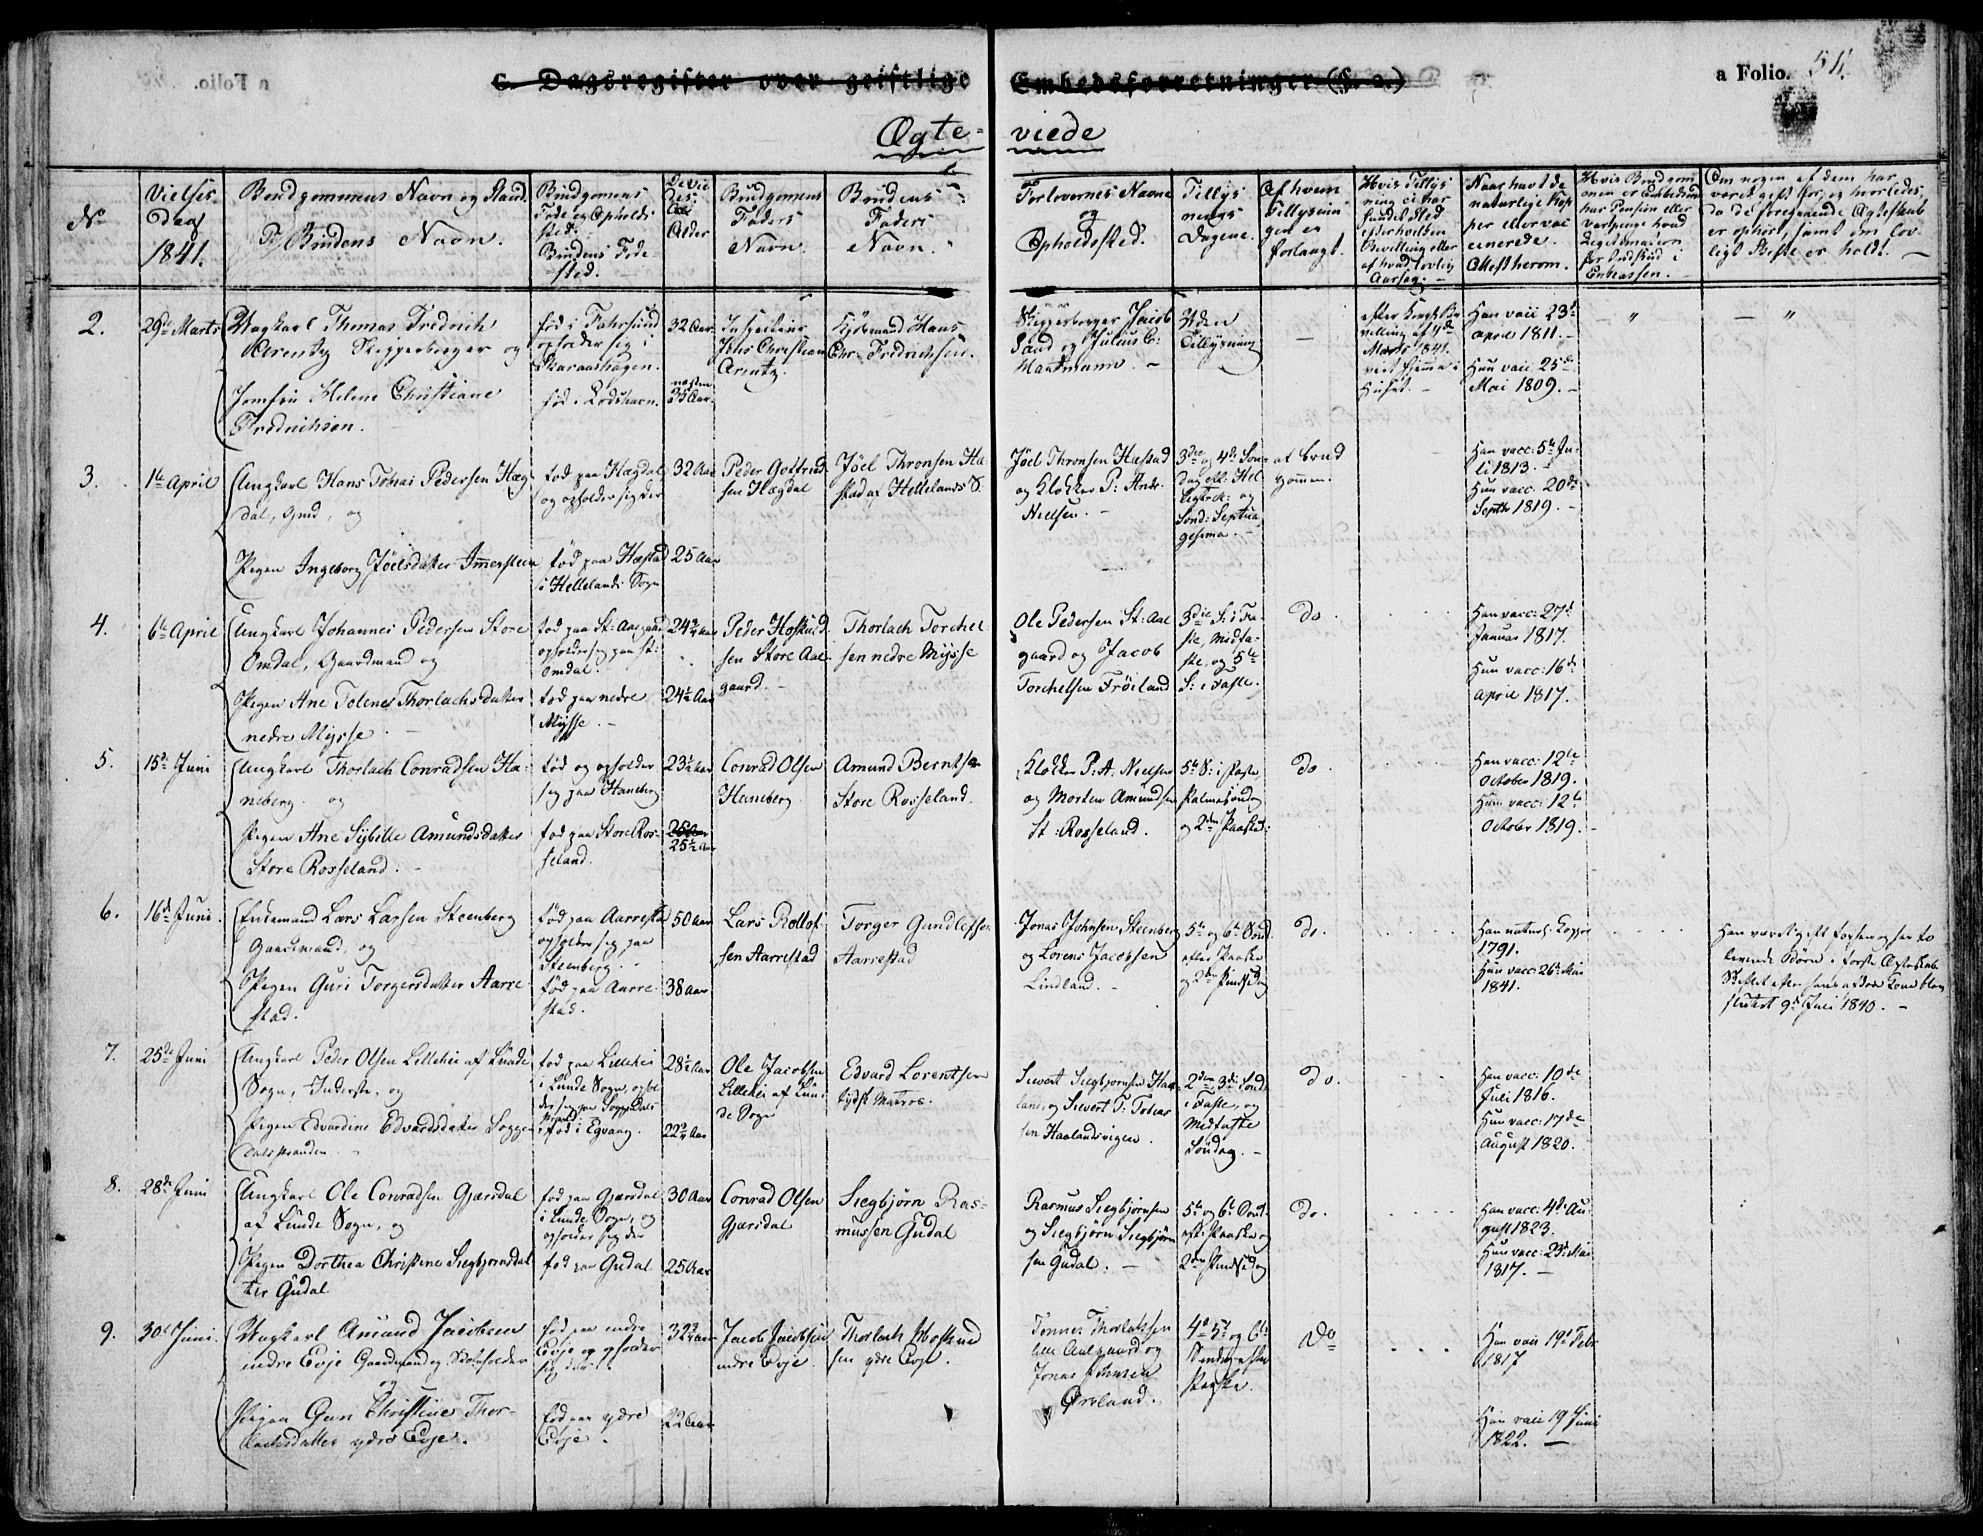 c. Dagsregister over geistlige Embedsforretninger (L. a.)
a Folio. 54.
Ægte- viede
No
Vielses
Dag
1841.
Brudgommens Navn og Stand
Brudens Navn.
Brudgomens
Føde og Opholds
sted.
Brudens Føde-
sted.
De Vie
des
Alder
Brudgomens
Faders
Navn.
Brudens
Faders
Navn.
Forlovernes Navne
og
Opholdssted.
Tillys
nings
Dagene.
Af hvem
Tillysnin
gen er
forlangt.
Hvis Tillys
ning ei har
fundet Sted
efter hvilken
Bevilling eller
af hvad lovlig
Aarsag.
Naar havt de
naturlige Kop
per eller vac
cinerede.
Attest herom.
Om nogen af dem har
været gift før, og hvorledes
da det foregaaende Ægteskab
er ophørt, samt om lov-
ligt Skifte er holdt.
2.
29de Marts
Ungkarl Thomas Fredrich
Arentz Skipperborger og
Jomfru Helene Christiane
Fredrichsen.
fød i Farsund
opholder sig i
fød i Lodshavn.
32 Aar.
næsten
33 Aar.
Jens Christian
Arentz.
Kjøbmand Hans
Chr. Fredrichsen.
Skipperborger Jacob
Sand og Julius C:
Uden
Tillysning
efter Kongl. Be
villing af
Marts 1841.
viet hjemme i
Huset.
Han vacc 23de
april 1811.
Hun vacc 25de
Mai 1809.
3.
1te April
Ungkarl Hans Tobias Pedersen Hæg-
dal, Gmd, og
Pigen Ingeborg Joelsdatter Immersteen
fød paa Hægdal
og opholder sig der
fød paa Hæstad
i Hellelands Sogn
32 Aar
25 Aar
Peder Gottfrid-
sen Hægdal
Joel Thronsen Hæ-
stad af Hellelands S.
Joel Thronsen Hæstad
og Klokker P: Andr.
Nielsen.
3de og 4de Søn-
dag eft. Hel-
ligtrek: og
Sønd: Septua
gesima.
af Brud
gommen.
Han vacc: 5te Ju-
li 1813.
Hun vacc: 20de
Septb 1819.
4.
6te April
Ungkarl Johannes Pedersen Store
Omdal, Gaardmand og
Pigen Ane Tolene Thorlachsdatter
nedre Mysse.
fød paa St: Aagaard
opholder sig paa St:
Omdal.
fød paa nedre
Mysse.
24¾ Aar
24½ Aar
Peder Hoskuld
sen Store Aal-
gaard.
Thorlach Torchel
sen nedre Mysse
Ole Pedersen St: Aal
gaard og Jacob
Torchelsen Frøiland
3die S: i Fa-
ste, Midfa-
ste, og 5te
S: i Faste.
do.
Han vacc: 27de
Januar 1817.
Hun vacc: 16de
april 1817.
5.
15de Juni
Ungkarl Thorlach Conradsen Ha-
neberg. og
Pigen Ane Sybille Amundsdatter
Store Rosseland.
fød og opholder
sig paa Haneberg
fød paa Store Ros-
seland.
23½ Aar
25½ Aar
Conrad Olsen
Haneberg.
Amund Berntsen
Store Rosseland.
Klokker P: A: Nielsen
og Morten Amundsen
St: Rosseland.
5te S: i Faste
Palmesøndag
og 2den Paasked:
do.
Han vacc: 12te
October 1819.
Hun vacc: 12te
October 1819.
6.
16de Juni.
Enkemand Lars Larsen Steenberg
Gaardmand, og
Pigen Guri Torgersdatter Aarre-
stad.
fød paa Aarrestad
opholder sig paa
Steenberg.
fød paa Aarre-
stad.
50 Aar
38 Aar
Lars Rollof-
sen Aarrestad
Torger Gundlefsen
Aarrestad
Jonas Johnsen Steenberg
og Lorens Jacobsen
Lindland.
5te og 6te Sønd.
efter Paaske
og 2den Pindsedag
do.
Han naturl: Kopper
1791.
Hun vacc: 26de Mai
1841.
Han været gift før og har to
levende Børn i første Ægteskab.
Skiftet efter hans afdøde Kone blev
sluttet 9de Juli 1840.
7.
25de Juni
Ungkarl Peder Olsen Lillehei af Lunde
Sogn, Inderste, og
Pigen Edvardine Edvardsdatter Sogge-
dalsstranden.
fød paa Lillehei
i Lunde Sogn, ophol
der sig paa Soggedals
strand
fød i Egvaag.
28½ Aar
22¾ Aar
Ole Jacobsen
Lillehei af Lun-
de Sogn
Edvard Lorentsen
tydsk Matros.
Sievert Siegbjørnsen Haa-
land, og Sievert T: Tobias
sen Haalandsvigen.
2den, 3die Sønd.
i Faste, og
Midfaste
Søndag.
do.
Han vacc: 10de
Juli 1816.
Hun vacc: 17de
August 1820.
8.
28de Juni
Ungkarl Ole Conradsen Gjærsdal
af Lunde Sogn, og
Pigen Dorthea Christine Siegbjørnsdat
ter Gudal
fød paa Gjærsdal
i Lunde Sogn, og
opholder sig der
fød paa Gudal
30 Aar
25 Aar
Conrad Olsen
Gjærsdal
Siegbjørn Ras-
mussen Gudal
Rasmus Siegbjørnsen
og Siegbjørn Siegbjørn
sen Gudal.
5te og 6te Sønd.
eft. Paaske og
2den Pindsedag
do.
Han vacc: 4de Au-
gust 1823.
Hun vacc: 23de Mai
1817.
9.
30te Juni.
Ungkarl Amund Jacobsen
indre Evje Gaardmand og Skoleholder
og
Pigen Guri Christine Thor-
lachsdatter ydre Evje.
fød paa indre
Evje og opholder
sig der.
fød paa ydre
Evje.
32¾ Aar
22 Aar
Jacob Jacobsen
indre Evje.
Thorlach Hoskuld
sen ydre Evje.
Tønnes Thorlaksen
lille Aalgaard og
Jonas Johnsen
Ørsland.
4de 5te og 6te
Søndag efter
Paaske.
Do
Han vacc 19de Febr
1817
Hun vacc 19 Juni
1822.